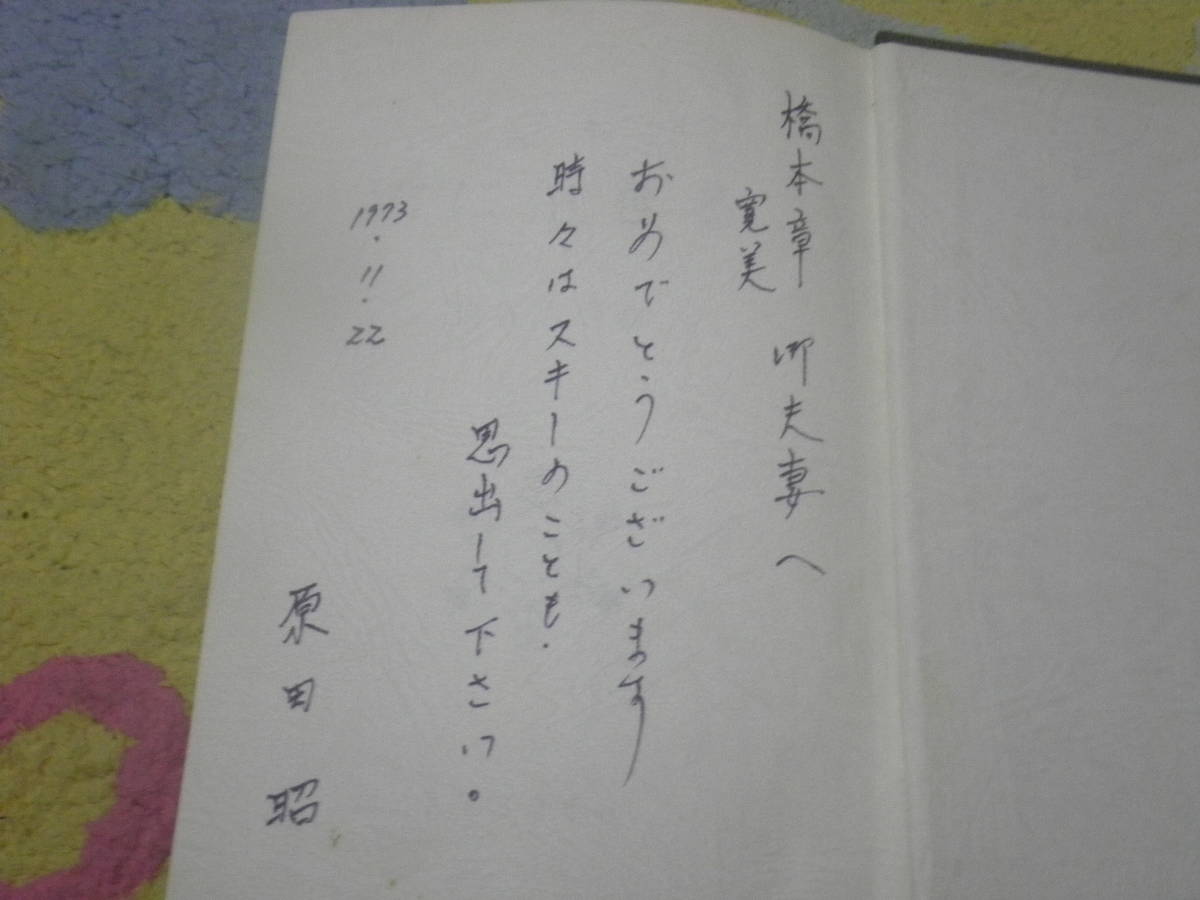 橋本章 御夫妻へ
寛美
おめでとうございます
時々はスキーのことも.
思出して下さい。
1973.11.22
原田昭